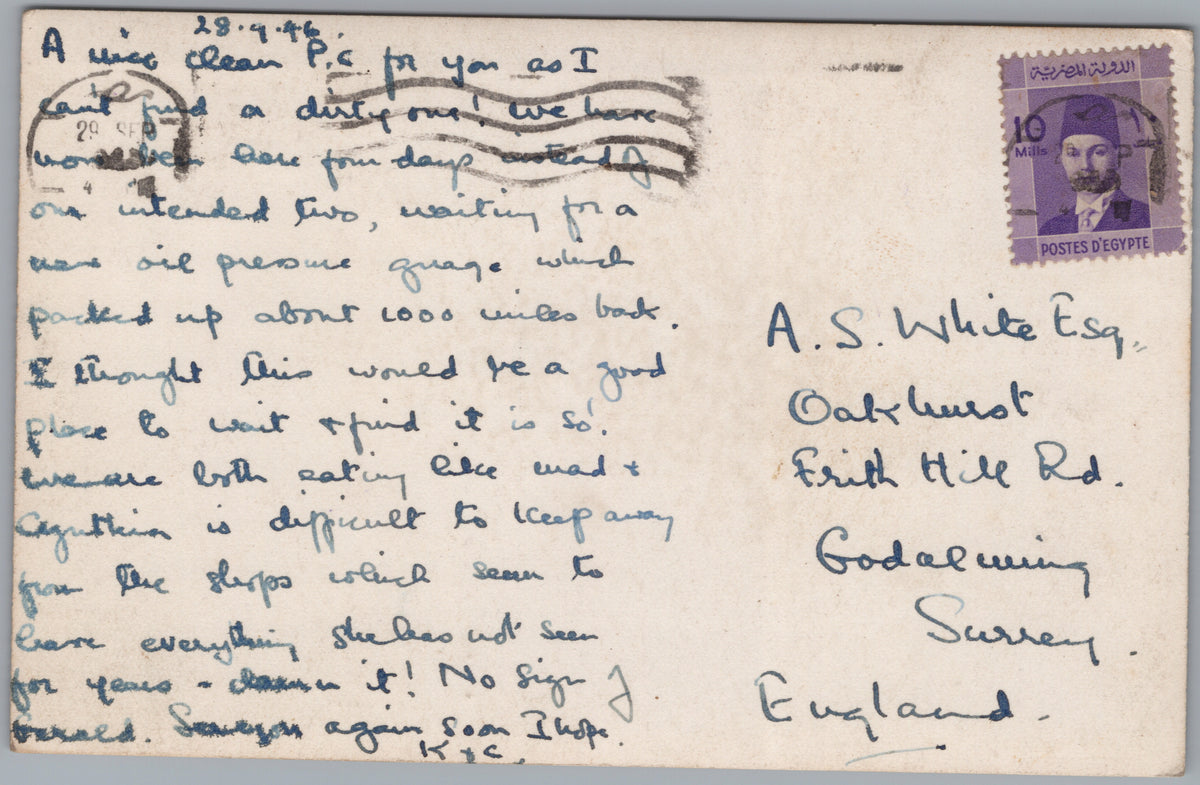 28.9.46.
A nice clean P.C for you as I
can't find a dirty one! We have
now been here four days instead of
our intended two, waiting for a
new oil pressure guage which
packed up about 1000 miles back.
I thought this would be a good
place to wait + find it is so!
We are both eating like mad +
Cynthia is difficult to keep away
from the shops which seem to
have everything she has not seen
for years - damn it! No sign of
Gerald. See you again soon I hope.
K + C.
29 SEP
الدولة المصرية
10
Mills
POSTES D'EGYPTE
A. S. White Esq.,
Oakhurst
Frith Hill Rd.
Godalming
Surrey.
England.